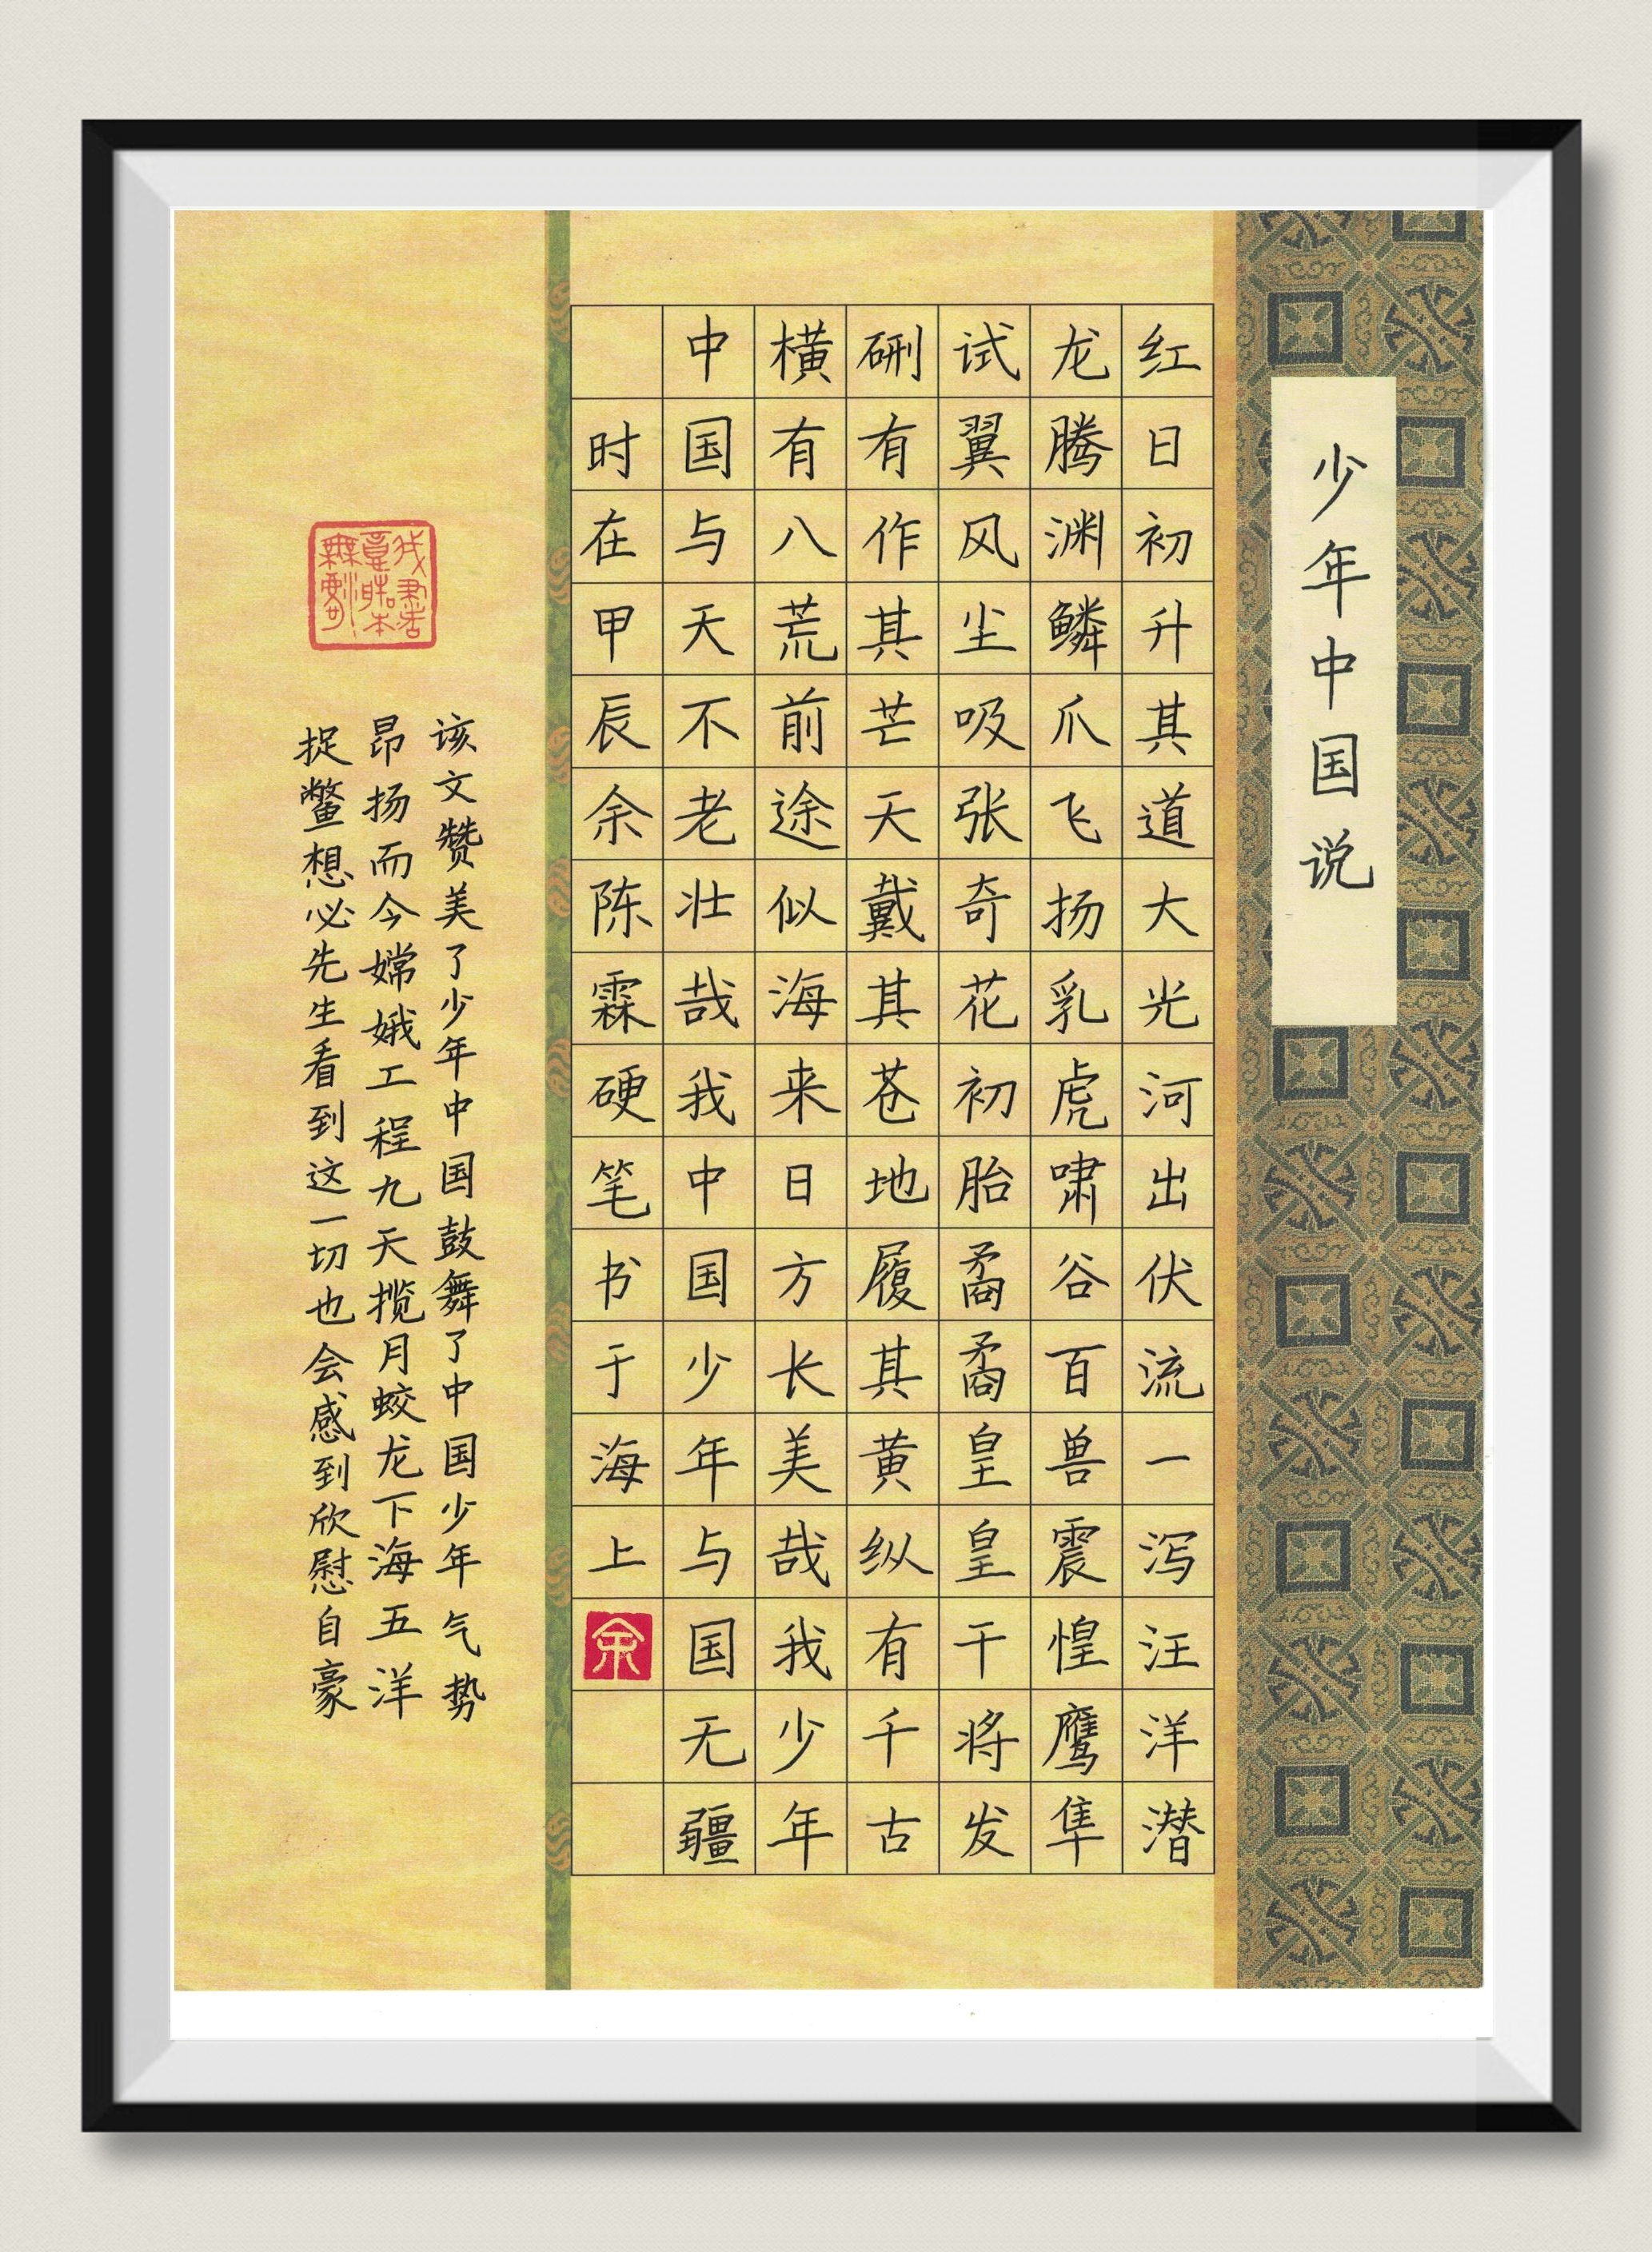 少年中国说
红日初升其道大光河出伏流一泻汪洋潜
龙腾渊鳞爪飞扬乳虎啸谷百兽震惶鹰隼
试翼风尘吸张奇花初胎矞矞皇皇干将发
硎有作其芒天戴其苍地履其黄纵有千古
横有八荒前途似海来日方长美哉我少年
中国与天不老壮哉我中国少年与国无疆
时在甲辰余陈霖硬笔书于海上
余
该文赞美了少年中国鼓舞了中国少年气势
昂扬而今嫦娥工程九天揽月蛟龙下海五洋
捉鳖想必先生看到这一切也会感到欣慰自豪